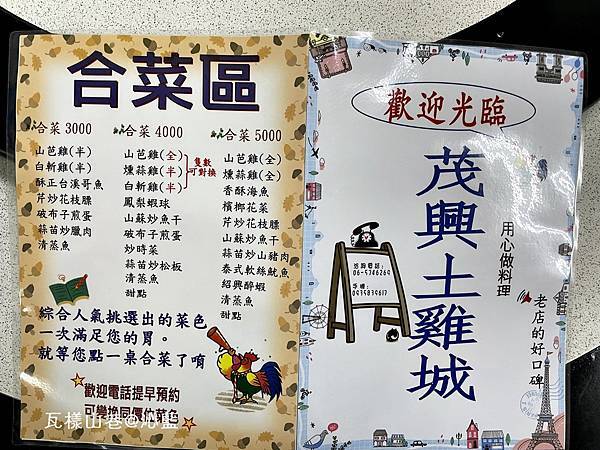 合菜區
合菜 3000
山芭雞(半)
白斬雞(半)
酥正台溪哥魚
芹炒花枝腰
破布子煎蛋
蒜苗炒臘肉
清蒸魚
合菜 4000
山芭雞(全)
燻蒜雞(半)
白斬雞(半)
隻數
可對換
鳳梨蝦球
山蘇炒魚干
破布子煎蛋
炒時菜
蒜苗炒松板
清蒸魚
甜點
合菜 5000
山芭雞(全)
燻蒜雞(全)
香酥海魚
檳榔花菜
芹炒花枝腰
山蘇炒魚干
蒜苗炒山豬肉
泰式軟絲魷魚
紹興醉蝦
清蒸魚
甜點
綜合人氣挑選出的菜色
一次滿足您的胃。
就等您點一桌合菜了唷
歡迎電話提早預約
可變換同價位菜色
歡迎光臨
茂興土雞城
用心做料理
老店的好口碑
洽詢電話:
06-5746264
手機:
0935839617
瓦樣山巷@沁藍